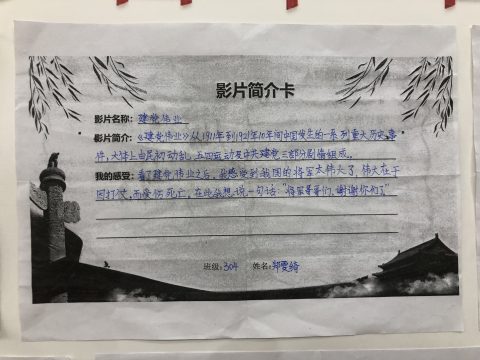 影片简介卡
影片名称：建党伟业
影片简介：《建党伟业》从1911年到1921年10年间中国发生的一系列重大历史事
件，大体上由民初动乱、五四运动及中共建党三部分剧情组成。
我的感受：看了建党伟业之后，我感受到我国的将军太伟大了，伟大在于
因打仗而受伤死亡，在此我想说一句话：“将军哥哥们，谢谢你们了”
班级：304 姓名：郑雯绮